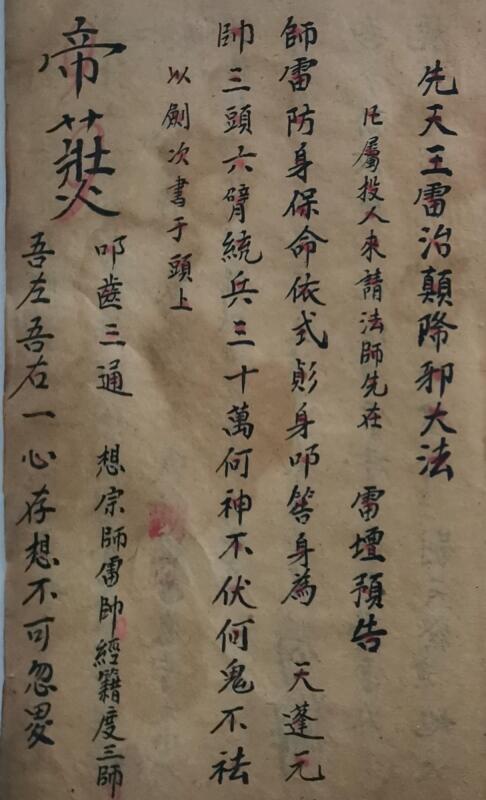 先天王雷治顛除邪大法
凡屬投人來請法師先在 雷壇預告
師雷防身保命依式身叩答身為 天蓬元
帥三頭六臂統兵三十萬何神不伏何鬼不祛
以劍次書于頭上
帝
叩齒三通 想宗師雷帥經籍度三師
吾左吾右一心存想不可忽